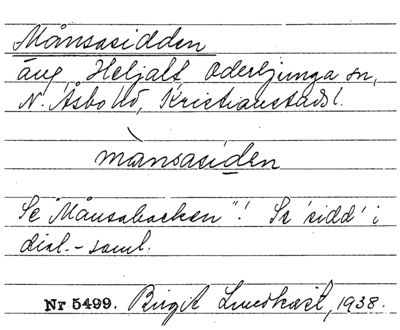 Månsasidden
äng, Heljalt, Oderljunga sn,
N. Åsbo hd, Kristianstads l.
mànsasiden
Se "Månsabacken"! Se 'sidd' i
dial.-saml.
Nr 5499. Birgit Lundkvist, 1938.